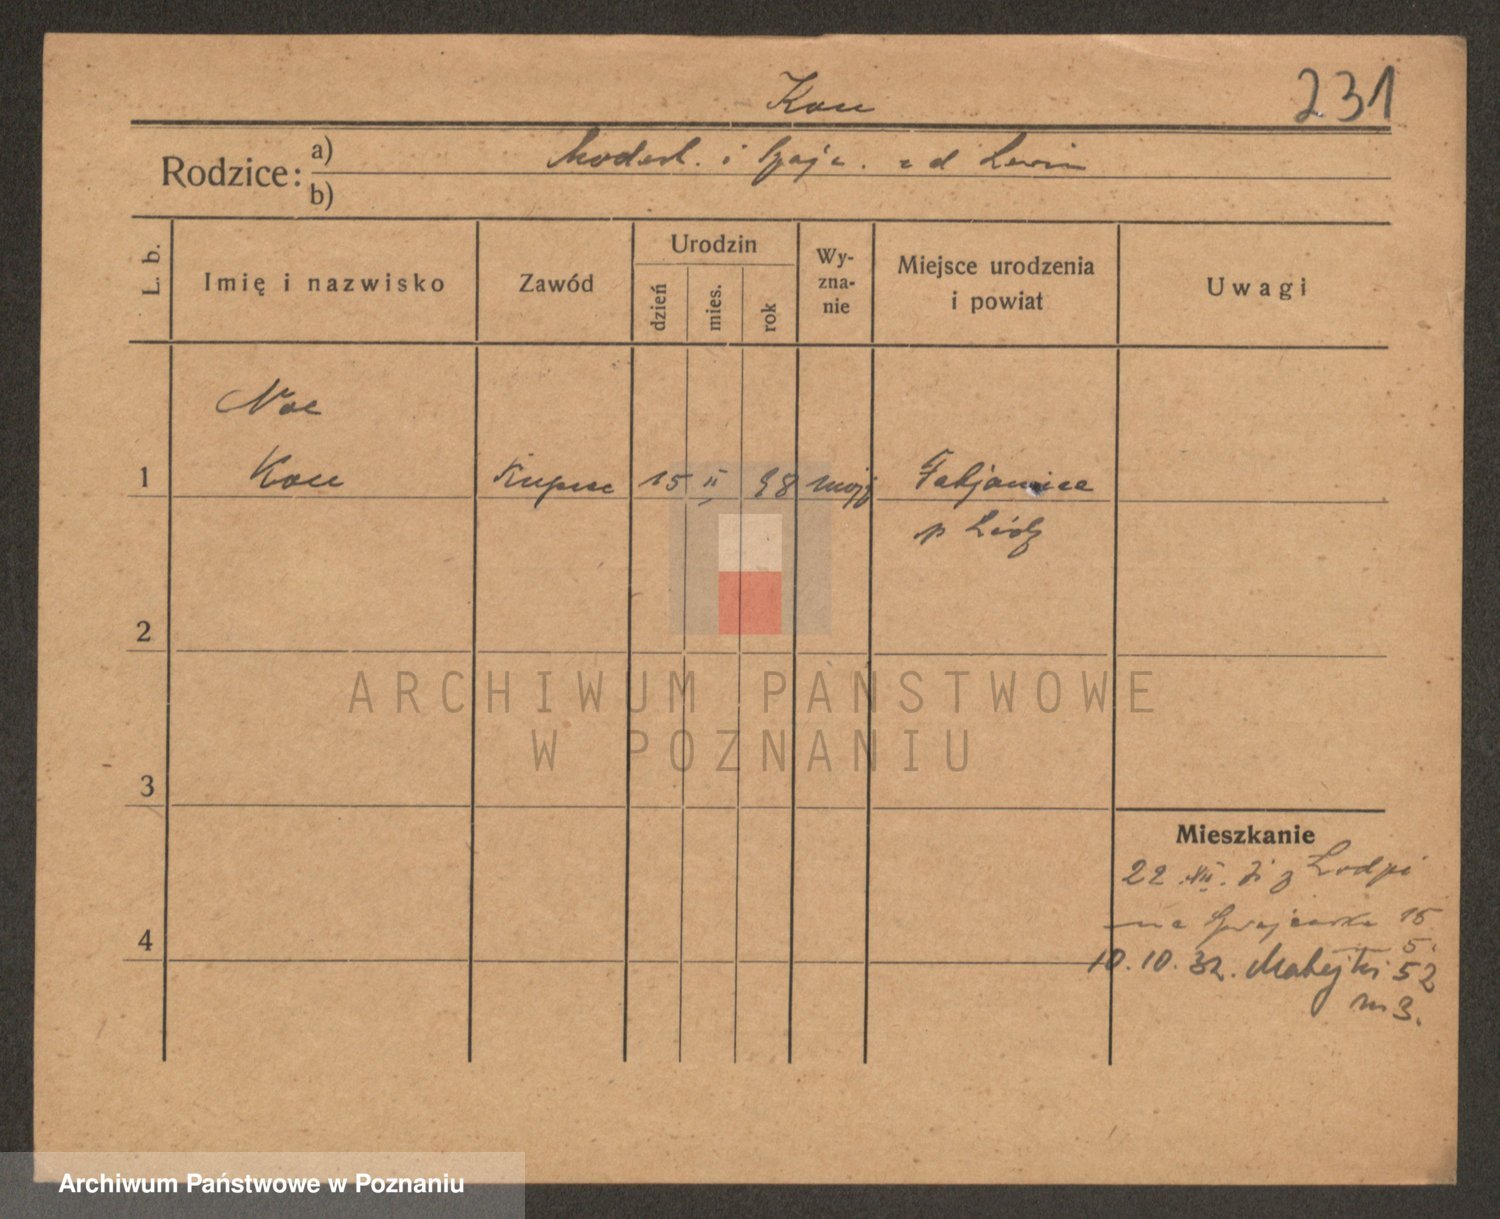 Kon
231
Rodzice: a)
i . z d Lewin
b)
L. b.
Imię i nazwisko
Zawód
Urodzin
dzień
mies.
rok
Wy-
zna-
nie
Miejsce urodzenia
i powiat
Uwagi
Noe
1 Kon Kupiec 15 II 98 mojż Pabjanice
p Łódź
2
ARCHIWUM PAŃSTWOWE
W POZNANIU
3
Mieszkanie
22 XII. 31 z Łodzi
na 15
4
5.
10.10.32. Matejki 52
m 3.
Archiwum Państwowe w Poznaniu